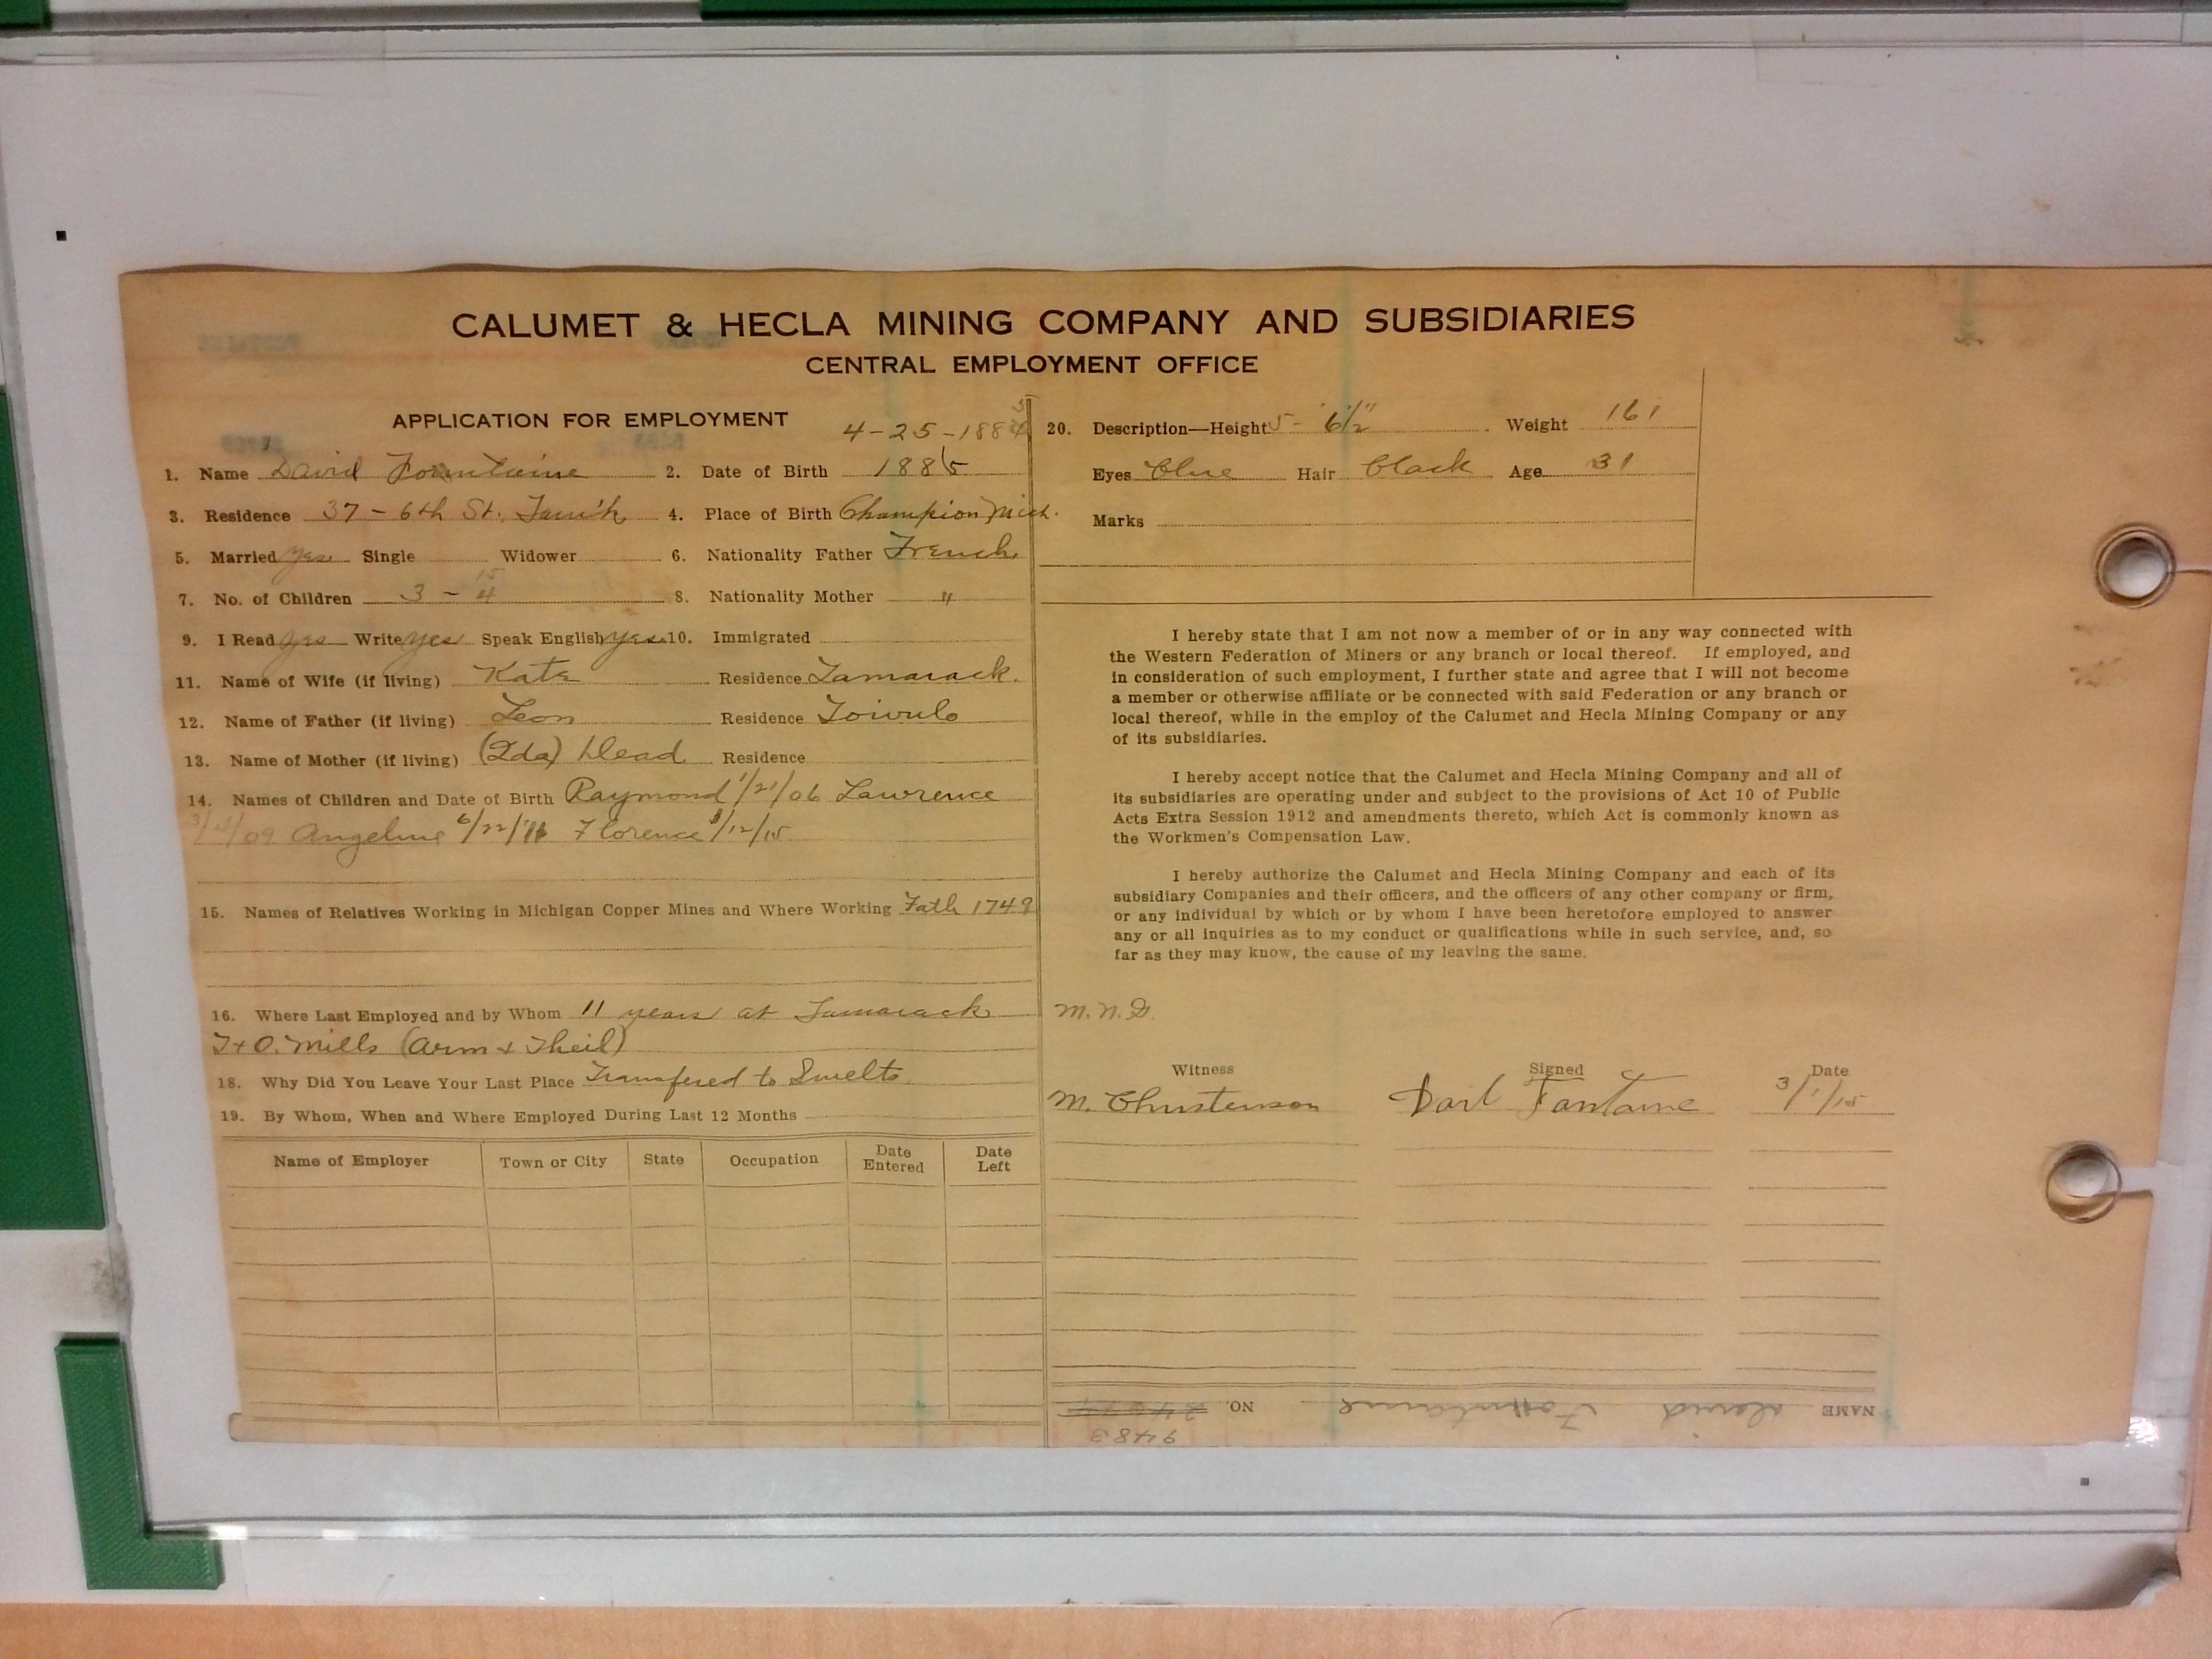 CALUMET & HECLA MINING COMPANY AND SUBSIDIARIES
CENTRAL EMPLOYMENT OFFICE
APPLICATION FOR EMPLOYMENT
4-25-188
1. Name David Fountaine 2. Date of Birth 1885
3. Residence 37 - 6th St. Tam'k 4. Place of Birth Champion Mich.
5. Married yes Single Widower 6. Nationality Father French
7. No. of Children 3 - 4 8. Nationality Mother "
9. I Read yes Write yes Speak English yes 10. Immigrated
11. Name of Wife (if living) Kate Residence Tamarack.
12. Name of Father (if living) Leon Residence Toivulo
13. Name of Mother (if living) (Ida) Dead Residence
14. Names of Children and Date of Birth Raymond 1/21/06 Lawrence
3/4/09 Angeline 6/22/11 Florence 1/12/15
15. Names of Relatives Working in Michigan Copper Mines and Where Working Fath 1749
16. Where Last Employed and by Whom 11 years at Tamarack
T+O. Mills (Arm & Theil)
18. Why Did You Leave Your Last Place Transfered to Smelts
19. By Whom, When and Where Employed During Last 12 Months
Name of Employer Town or City State Occupation Date Entered Date Left
20. Description—Height 5 - 6 1/2" Weight 161
Eyes Blue Hair Black Age 31
Marks
I hereby state that I am not now a member of or in any way connected with
the Western Federation of Miners or any branch or local thereof. If employed, and
in consideration of such employment, I further state and agree that I will not become
a member or otherwise affiliate or be connected with said Federation or any branch or
local thereof, while in the employ of the Calumet and Hecla Mining Company or any
of its subsidiaries.
I hereby accept notice that the Calumet and Hecla Mining Company and all of
its subsidiaries are operating under and subject to the provisions of Act 10 of Public
Acts Extra Session 1912 and amendments thereto, which Act is commonly known as
the Workmen's Compensation Law.
I hereby authorize the Calumet and Hecla Mining Company and each of its
subsidiary Companies and their officers, and the officers of any other company or firm,
or any individual by which or by whom I have been heretofore employed to answer
any or all inquiries as to my conduct or qualifications while in such service, and, so
far as they may know, the cause of my leaving the same.
Witness Signed Date
M. Christenson Davd Fantaine 3/1/15
NAME David Fountaine NO.
9483